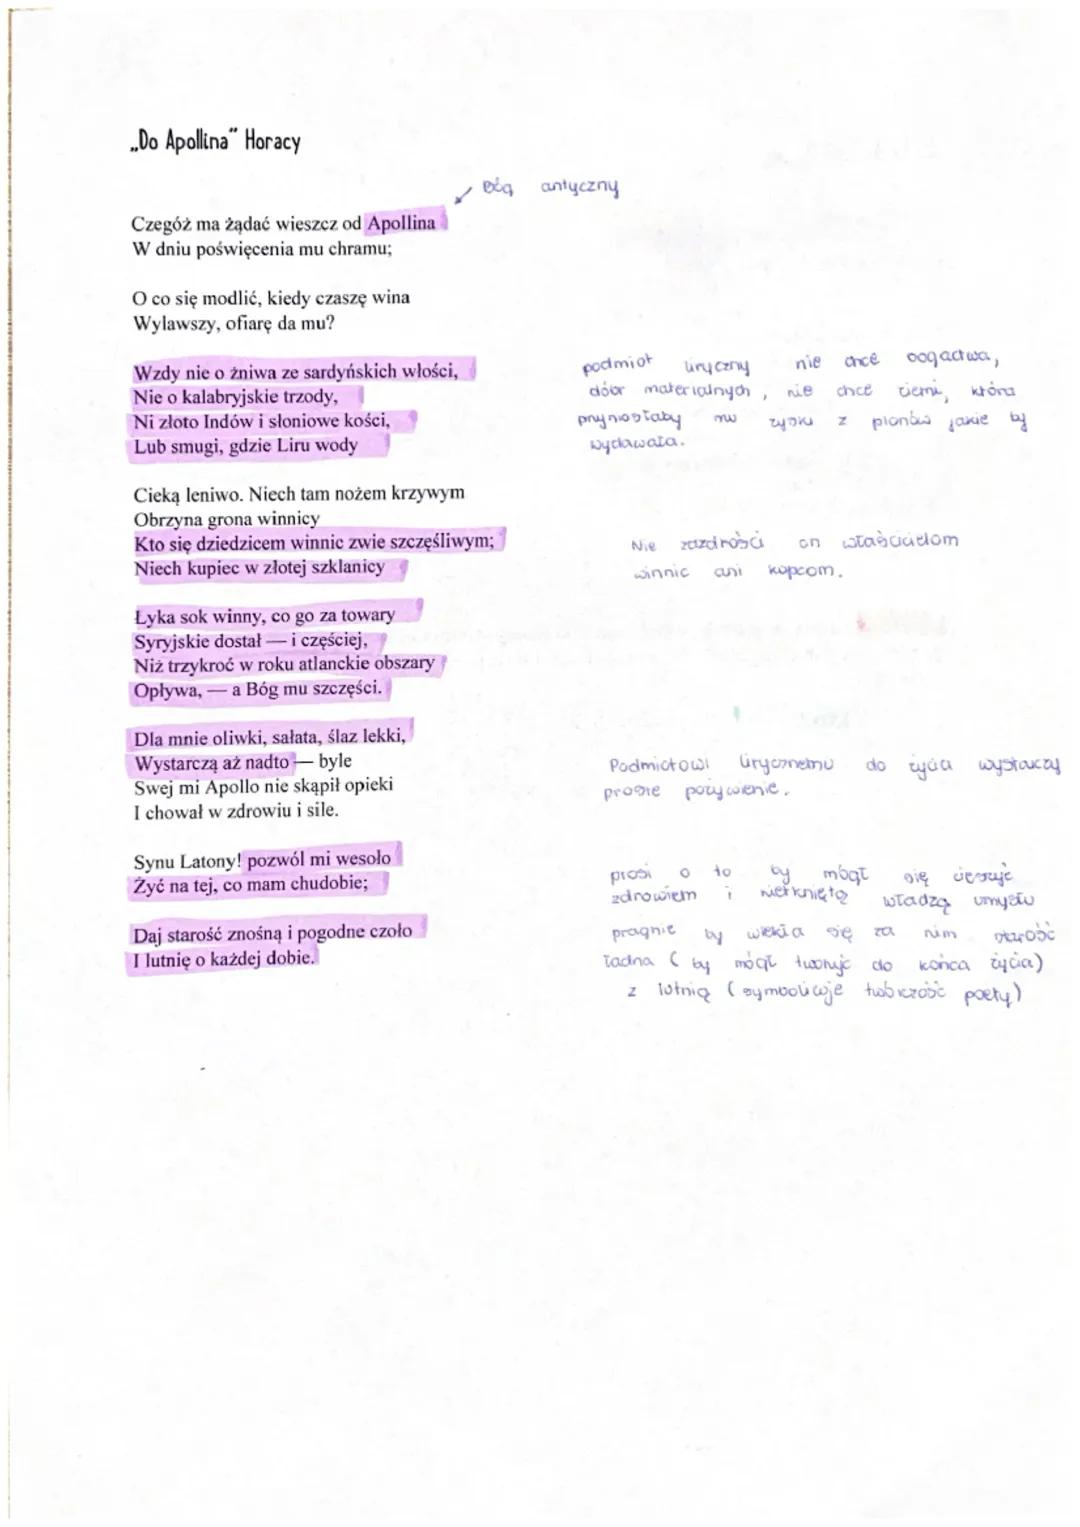 „Do Apollina” Horacy
Bóg antyczny
Czegóż ma żądać wieszcz od Apollina
W dniu poświęcenia mu chramu;
O co się modlić, kiedy czaszę wina
Wylawszy, ofiarę da mu?
Wzdy nie o żniwa ze sardyńskich włości,
Nie o kalabryjskie trzody,
Ni złoto Indów i słoniowe kości,
Lub smugi, gdzie Liru wody
podmiot liryczny nie chce bogactwa,
dóbr materialnych, nie chce ziemi, która
przyniosłaby mu zyski z plonów jakie by
wydawała.
Cieką leniwo. Niech tam nożem krzywym
Obrzyna grona winnicy
Kto się dziedzicem winnic zwie szczęśliwym;
Niech kupiec w złotej szklanicy
Nie zazdrości on właścicielom
winnic ani kupcom.
Łyka sok winny, co go za towary
Syryjskie dostał — i częściej,
Niż trzykroć w roku atlanckie obszary
Opływa, — a Bóg mu szczęści.
Dla mnie oliwki, sałata, ślaz lekki,
Wystarczą aż nadto — byle
Swej mi Apollo nie skąpił opieki
I chował w zdrowiu i sile.
Podmiotowi lirycznemu do życia wystarczy
proste pożywienie.
Synu Latony! pozwól mi wesoło
Żyć na tej, co mam chudobie;
Daj starość znośną i pogodne czoło
I lutnię o każdej dobie.
prosi o to by mógł się cieszyć
zdrowiem i nietkniętą władzą umysłu
pragnie by wlekła się za nim starość
ładna (by mógł tworzyć do końca życia)
z lutnią (symbolizuje twórczość poety)